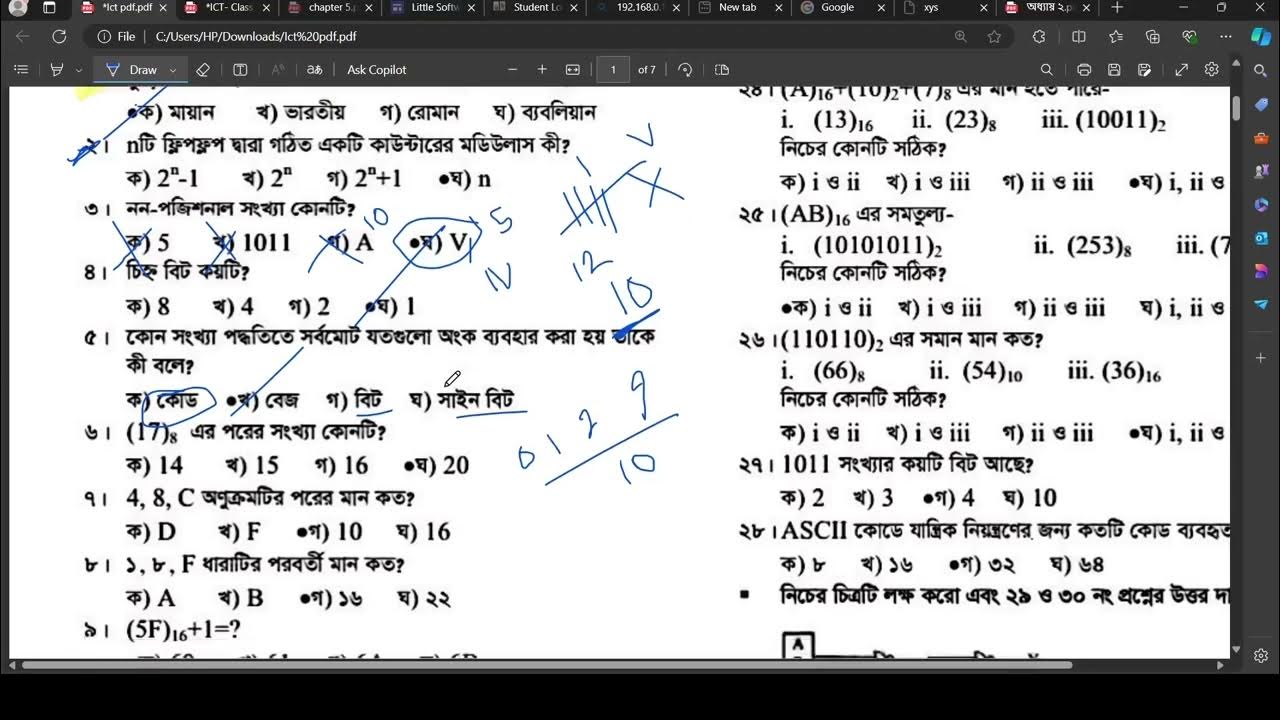 *Ict pdf.pdf
*ICT- Class
chapter 5.p
Little Softw
Student Lo
192.168.0.1
New tab
Google
xys
অধ্যায় ২.p
File
C:/Users/HP/Downloads/Ict%20pdf.pdf
Draw
aあ
Ask Copilot
1 of 7
●ক) মায়ান খ) ভারতীয় গ) রোমান ঘ) ব্যবলিয়ান
২। nটি ফ্লিপফ্লপ দ্বারা গঠিত একটি কাউন্টারের মডিউলাস কী?
ক) 2ⁿ-1 খ) 2ⁿ গ) 2ⁿ+1 ●ঘ) n
৩। নন-পজিশনাল সংখ্যা কোনটি?
ক) 5 খ) 1011 গ) A ●ঘ) V
10
5
IV
V
12
10
৪। চিহ্ন বিট কয়টি?
ক) 8 খ) 4 গ) 2 ●ঘ) 1
৫। কোন সংখ্যা পদ্ধতিতে সর্বমোট যতগুলো অংক ব্যবহার করা হয় তাকে
কী বলে?
ক) কোড ●খ) বেজ গ) বিট ঘ) সাইন বিট
0 1 2 9
10
৬। (17)₈ এর পরের সংখ্যা কোনটি?
ক) 14 খ) 15 গ) 16 ●ঘ) 20
৭। 4, 8, C অণুক্রমটির পরের মান কত?
ক) D খ) F ●গ) 10 ঘ) 16
৮। ১, ৮, F ধারাটির পরবর্তী মান কত?
ক) A খ) B ●গ) ১৬ ঘ) ২২
৯। (5F)₁₆+1=?
২৪। (A)₁₆+(10)₂+(7)₈ এর মান হতে পারে-
i. (13)₁₆ ii. (23)₈ iii. (10011)₂
নিচের কোনটি সঠিক?
ক) i ও ii খ) i ও iii গ) ii ও iii ●ঘ) i, ii ও
২৫। (AB)₁₆ এর সমতুল্য-
i. (10101011)₂ ii. (253)₈ iii. (7
নিচের কোনটি সঠিক?
●ক) i ও ii খ) i ও iii গ) ii ও iii ঘ) i, ii ও
২৬। (110110)₂ এর সমান মান কত?
i. (66)₈ ii. (54)₁₀ iii. (36)₁₆
নিচের কোনটি সঠিক?
ক) i ও ii খ) i ও iii গ) ii ও iii ●ঘ) i, ii ও
২৭। 1011 সংখ্যার কয়টি বিট আছে?
ক) 2 খ) 3 ●গ) 4 ঘ) 10
২৮। ASCII কোডে যান্ত্রিক নিয়ন্ত্রণের জন্য কতটি কোড ব্যবহৃত
ক) ৮ খ) ১৬ ●গ) ৩২ ঘ) ৬৪
■ নিচের চিত্রটি লক্ষ করো এবং ২৯ ও ৩০ নং প্রশ্নের উত্তর দা
A